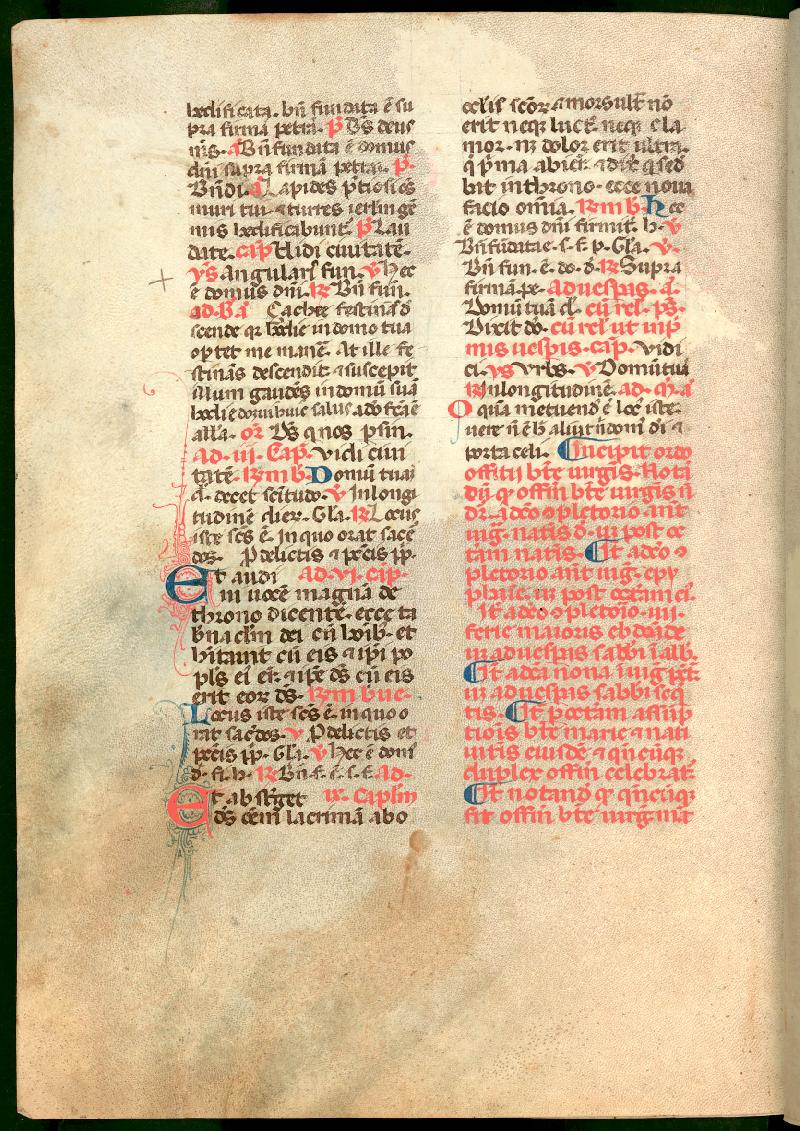 hedificata. bn̄ fundata ē su
pra firmā petrā. p̄ Dn̄s deus
nr̄s. a Bn̄ fundata ē domus
dn̄i supra firmā petrā. p̄.
Bn̄di. a Lapides p̄tiosi om̄s
muri tui ⁊ turres ierl̄m gē
mis hedificabunt̄. p̄ Lau
date. cap̄ Vidi ciuitatē.
ys Angularis fun. v̄ hec
ē domus dn̄i. ℟ Bn̄ fun.
ad. B. a Zachee festinās d̄
scende qr̄ hodie in domo tua
oportet me manē. At ille fe
stinās descendit ⁊ suscepit
illum gaudēs in domū suā
hodie domui huic salus a dō fc̄ā ē
all̄a. or̄ Ds̄ q nos p̄ sin.
ad. iii. Cap̄. Vidi ciui
tatē. ℟m b̄. Domū tuā
d. decet scītudo. v̄ In longi
tudinē dier. Gl̄a. ℟ Locus
iste scs̄ ē. in quo orat sacē
dos. P delictis ⁊ pcc̄is pp̄.
Et audi ad. vi. cap̄.
ui uocē magnā de
throno dicentē. ecce ta
b̄naclm̄ dei cū hoīb. et
h̄itauit cū eis ⁊ ip̄i po
pl̄s ei er̄. ⁊ ip̄e ds̄ cū eis
erit eor ds̄. ℟m breue.
Locus iste scs̄ ē. in quo o
rat sacēdos. v̄ P delictis et
pcc̄is pp̄. Gl̄a. v̄ hec ē dom̄
d. fi. h. ℟ Bn̄. f. ē. s. f. ad.
Et absterget ix. Caplm̄
ds̄ oēm lacrimā abo
celis scōr ⁊ mors ult̄ nō
erit neqz luct̄. neqz cla
mor. nz dolor erit ultrā.
q p̄ma abier̄. ⁊ dix̄ q sed
bit in throno. ecce noua
facio omīa. ℟m b̄. Hec
ē domus dn̄i firmit̄. h. v̄
Bn̄ fūdata ē. s. f. p. Gl̄a. v̄.
Bn̄ fun. ē. do. d. ℟ Supra
firmā pe. ad uesp̄as. a.
Domū tuā d. cū rel̄. ps̄.
Dixit dō. cū rel̄. ut in p̄i
mis uesp̄is. cap̄. Vidi
ci. ys Vrbs. v̄ Domū tuā
℟ In longitudinē. ad. m̄. a
O quā metuend̄ ē loc̄ iste.
uere n̄ ē h̄ aliut n̄ dom̄ di ⁊
porta celi. Incipit ordo
offitij bt̄e uirgīs. Notā
dū qz offm̄ bt̄e uirgīs n̄
dr̄. a dēo 9pletorio ant̄
uig̅. natis d. vsqz post oc
tauā natis. Et a dēo 9
pletorio ant̄ uig̅. epy
phaīe. vsqz post octauā ei.
It̄ a dēo 9pletorio. iiii.
ferie maioris ebdōade
vsqz ad uesp̄as sabb̄i ī alb̄.
It̄ a dēa nona ī uig̅ pēt̄.
vsqz ad uesp̄as sabb̄i seq̄
tis. It̄ p octauā assūp
tiois bt̄e marie ⁊ nati
uitis eiusdē ⁊ qn̄cūqz
duplex offm̄ celebrat̄.
Et notand qz qn̄cūqz
fit offm̄ bt̄e uirg̅ma